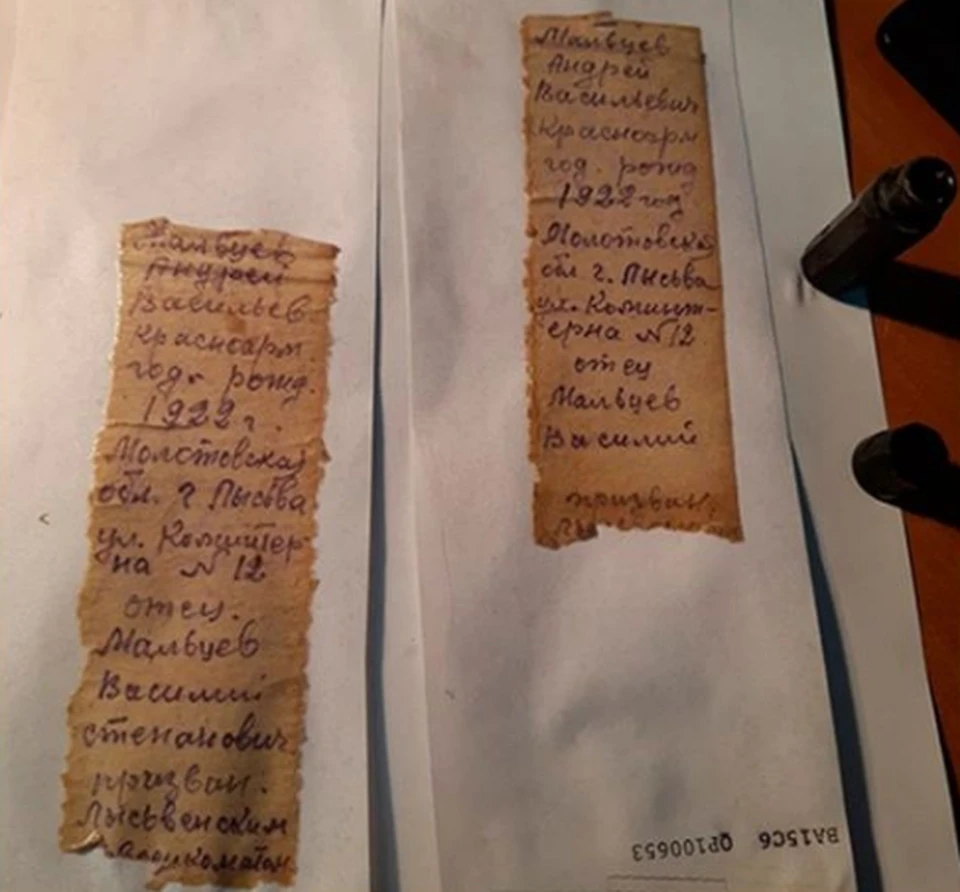 Мальцев
Андрей
Васильев
Красноарм
год. рожд.
1922 г.
Молотовская
обл. г Лысьва
ул. Коминтер
на N 12
отец.
Мальцев
Василий
степанович
призван.
Лысьвенским
Мальцев
Андрей
Васильевич
Красноарм
год. рожд
1922 год
Молотовская
обл г. Лысьва
ул. Коминт-
ерна N 12
отец
Мальцев
Василий
призван.
BA15C6 QP100653